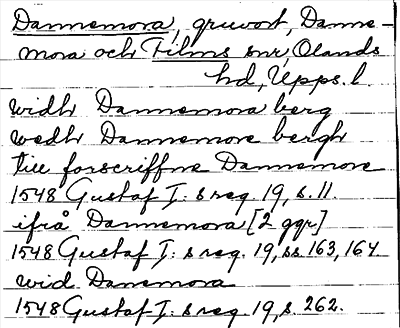 Dannemora, gruvort, Danne-
mora och Films snr, Olands
hd, Upps. l.
widh Dannemora berg
wedh Dannemore bergh
till forscriffne Dannemore
1548 Gustaf I: s reg. 19, s. 11.
ifrå Dannemora [2 ggr]
1548 Gustaf I: s reg. 19, ss 163, 164
wid Danemora
1548 Gustaf I: s reg. 19, s. 262.